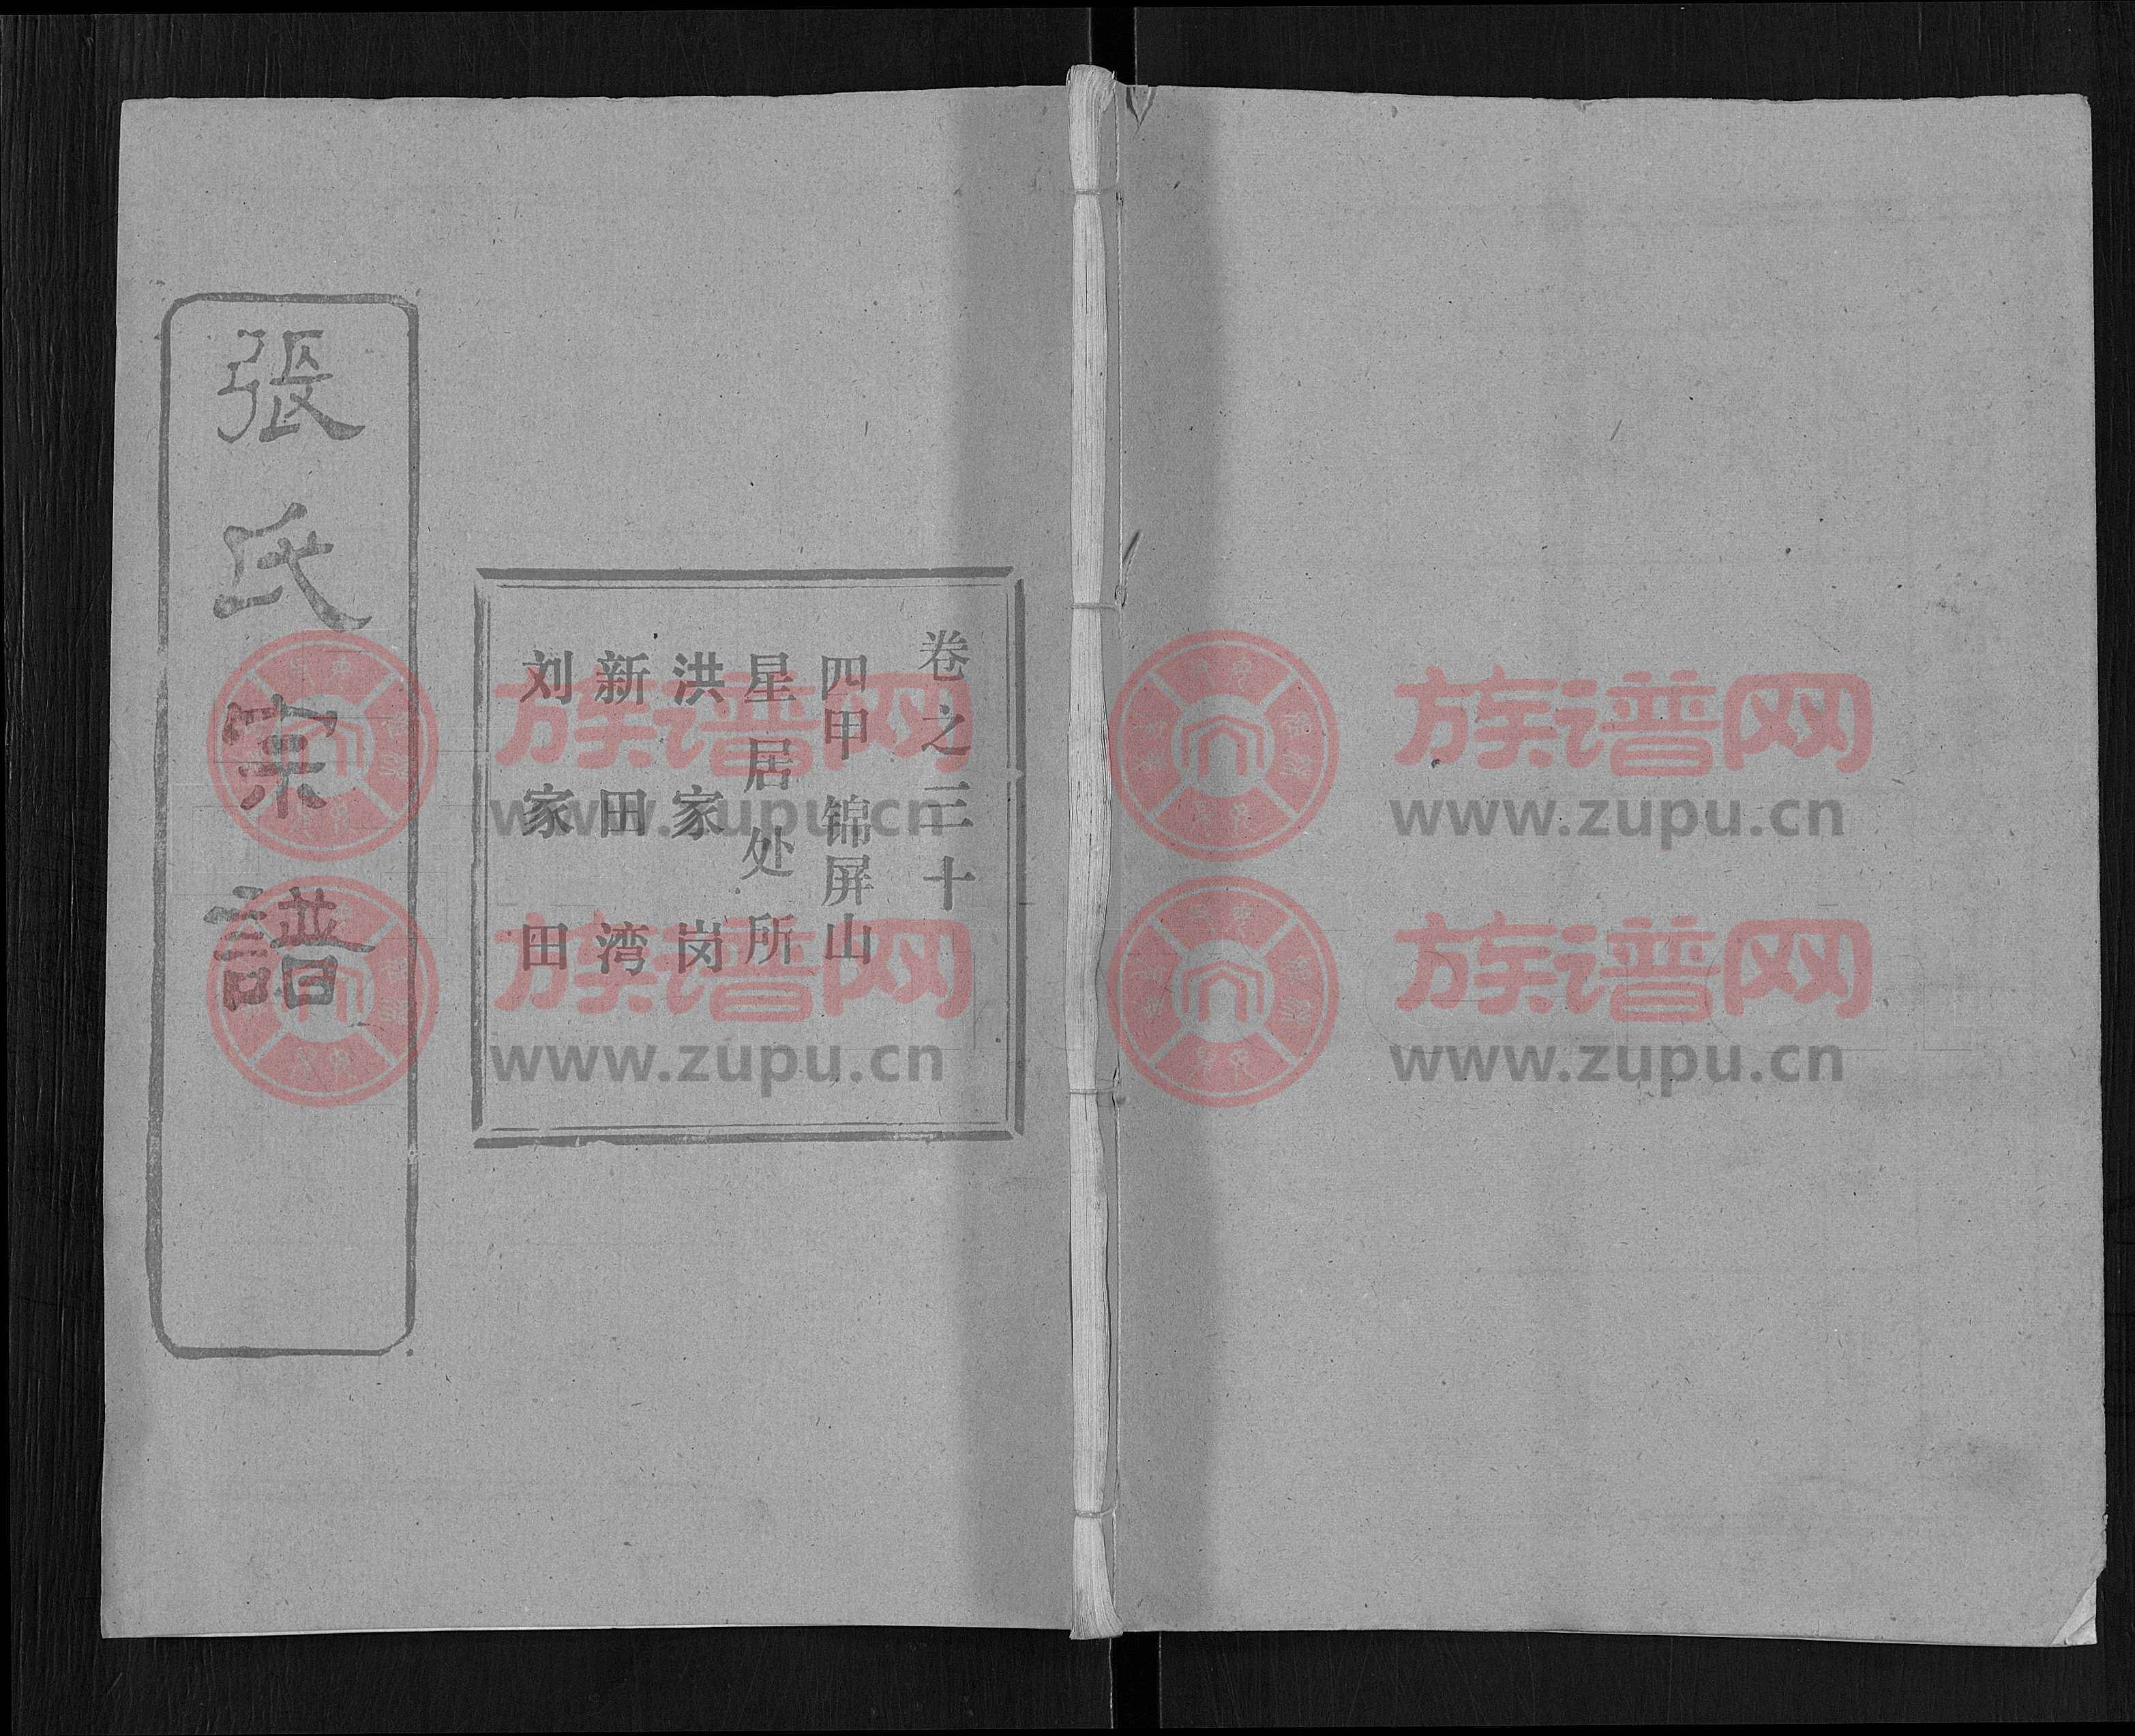 卷之三十
四甲 锦屏山
星居处所
洪家岗
新田湾
刘家田
張氏宗譜
族谱网
www.zupu.cn
族谱网
www.zupu.cn
族谱网
www.zupu.cn
族谱网
www.zupu.cn